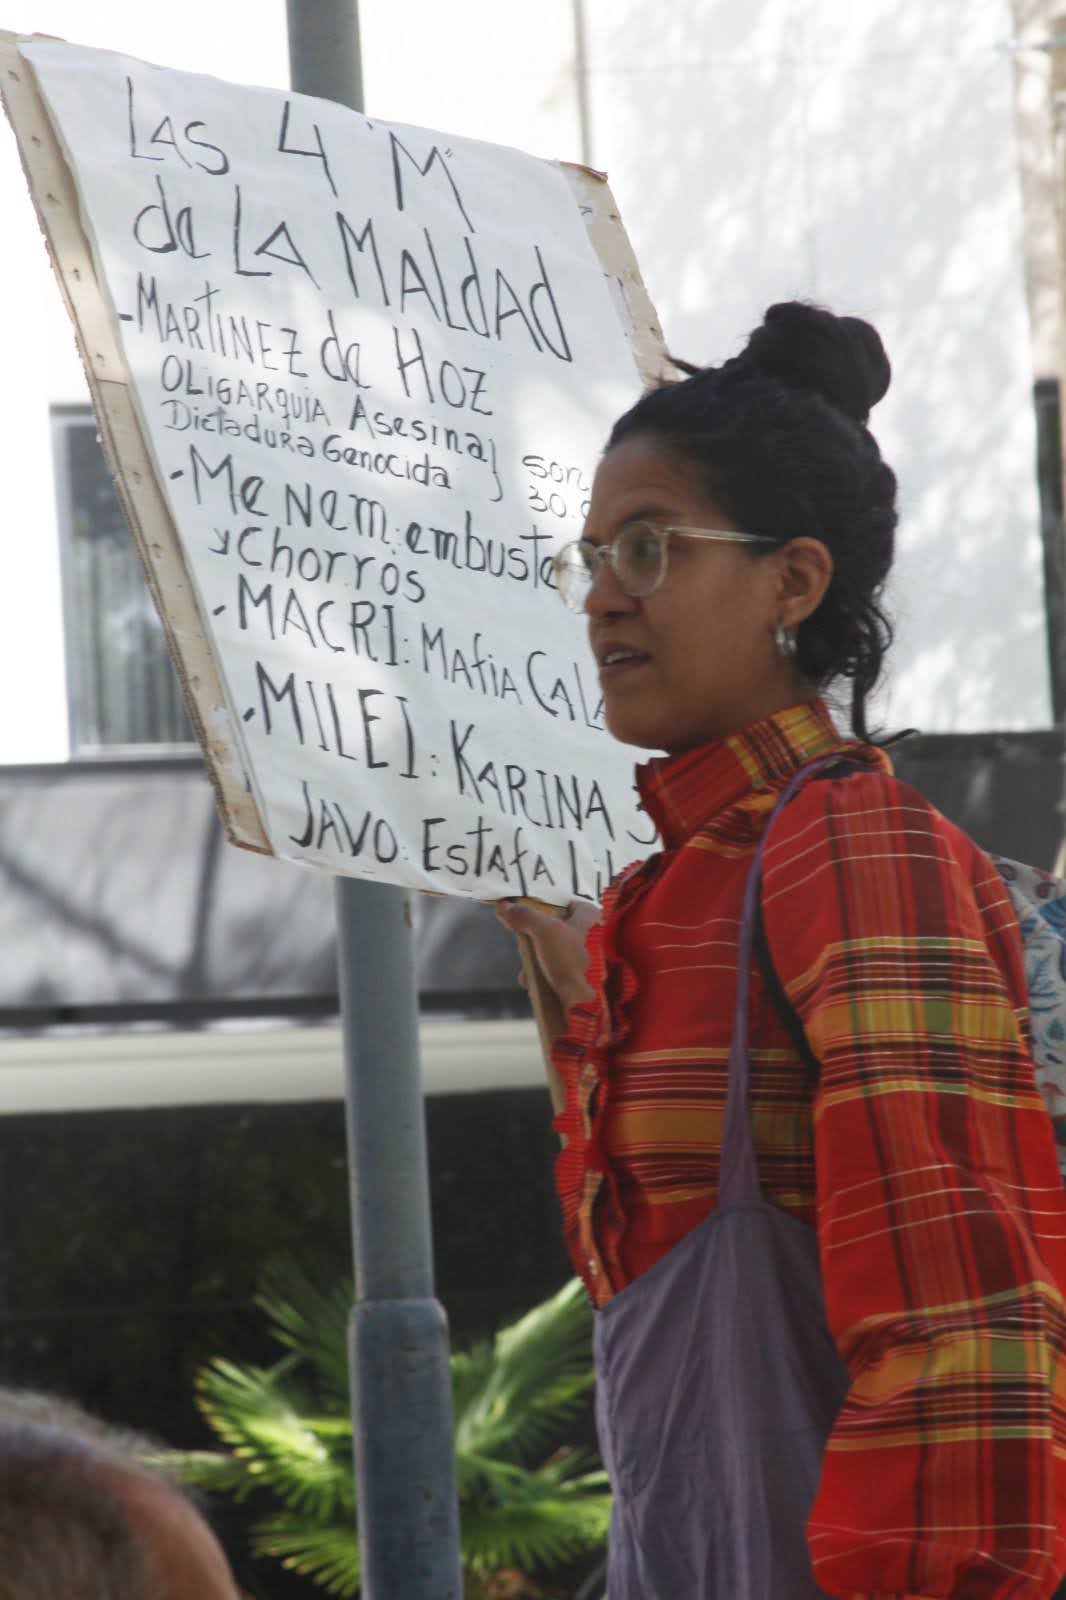 Las 4 "M"
de La Maldad
-Martinez de Hoz
Oligarquia Asesina
Dictadura Genocida } son
30.
-Menem: embuste
y Chorros
-MACRI: Mafia CALA
-MILEI: KARINA 3
JAVO: Estafa Lib